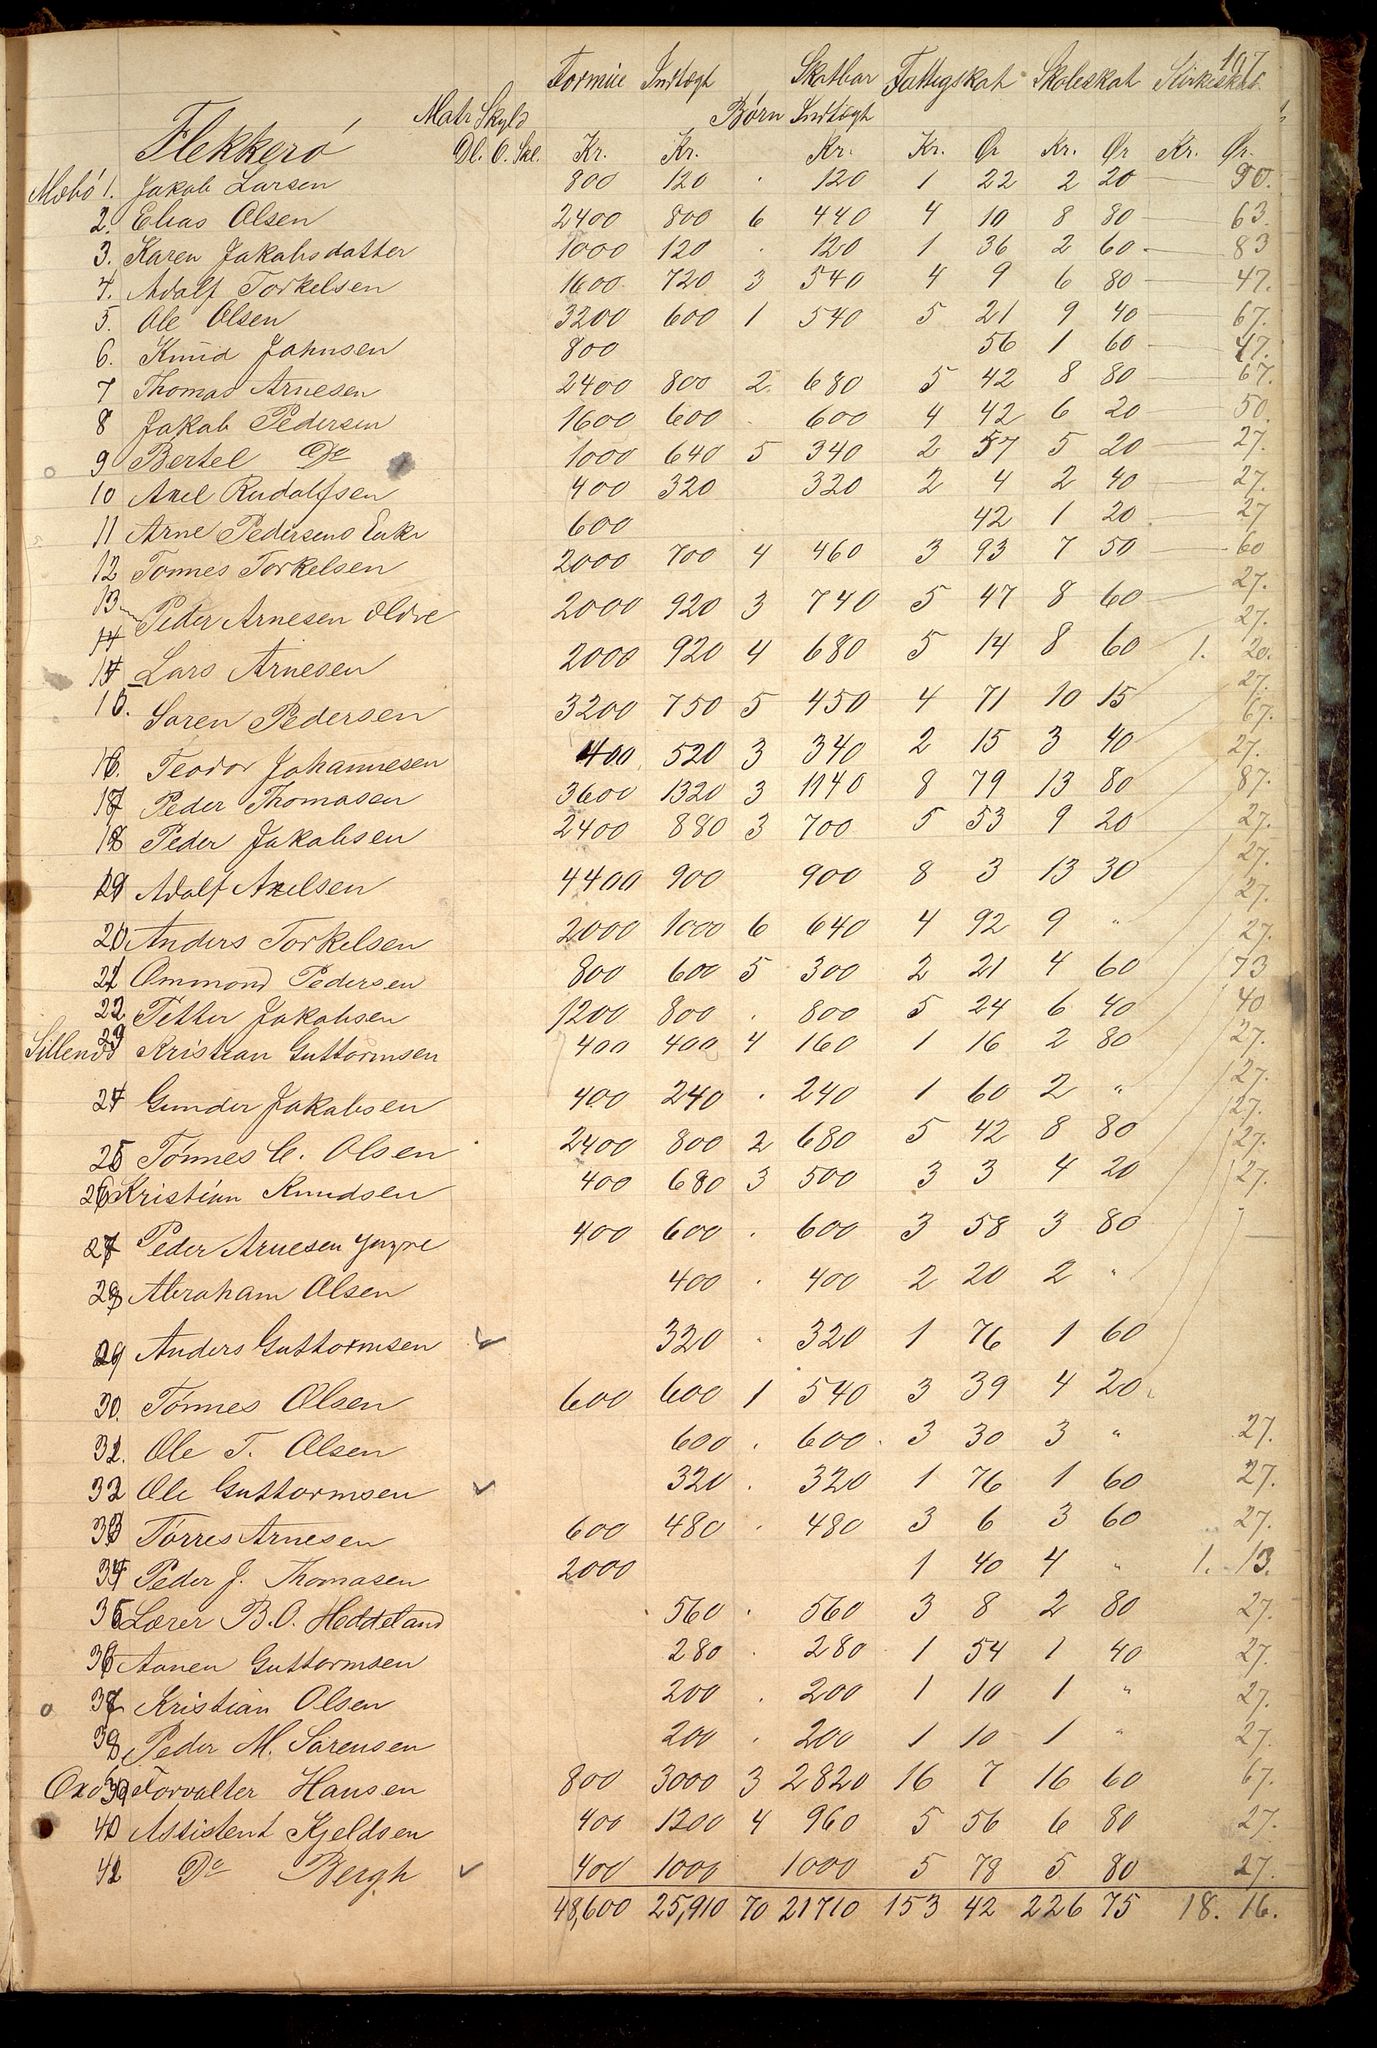 107.
Formue Indtægt Skatbar Fattigskat Skoleskat Kirkeskat
Matr. Skyld Børn Indtægt
Flekkerö Dl. O. Skl. Kr. Kr. Kr. Kr. Ør Kr. Ør Kr. Ør.
Mæbö 1. Jakob Larsen 800 120 " 120 1 22 2 20 — 90.
2. Elias Olsen 2400 800 6 440 4 10 8 80 — 63.
3. Karen Jakobsdatter 1000 120 . 120 1 36 2 60 — 83
4. Adolf Torkelsen 1600 720 3 540 4 9 6 80 — 47.
5. Ole Olsen 3200 600 1 540 5 21 9 40 — 67.
6. Knud Johnsen 800 56 1 60 — 47.
7 Thomas Arnesen 2400 800 2 680 5 42 8 80 — 67.
8 Jakob Pedersen 1600 600 . 600 4 42 6 20 — 50.
9 Bertel Do 1000 640 5 340 2 57 5 20 — 27.
10 Axel Rudolfsen 400 320 320 2 4 2 40 — 27.
11 Arne Pedersens Enke 600 42 1 20 27
12 Tönnes Torkelsen 2000 700 4 460 3 93 7 50 — 60
13 Peder Arnesen ældre 2000 920 3 740 5 47 8 60 27.
27.
14 Lars Arnesen 2000 920 4 680 5 14 8 60 1. 20.
27.
15. Soren Pedersen 3200 750 5 450 4 71 10 15 67.
16. Teodor Johannesen 400 520 3 340 2 15 3 40 27.
17 Peder Thomasen 3600 1320 3 1140 8 79 13 80 87.
18 Peder Jakobsen 2400 880 3 700 5 53 9 20 27.
27.
19 Adolf Axelsen 4400 900 900 8 3 13 30
27.
20 Anders Torkelsen 2000 1000 6 640 4 92 9 " 27.
21 Ommond Pedersen 800 600 5 300 2 21 4 60 73
22 Petter Jakobsen 1200 800 . 800 5 24 6 40 40
Sillend 23 Kristian Guttormsen 400 400 4 160 1 16 2 80 27.
27.
24 Gunder Jakobsen 400 240 . 240 1 60 2 " 27.
25 Tönnes C. Olsen 2400 800 2 680 5 42 8 80 27.
26 Kristian Knudsen 400 680 3 500 3 3 4 20 27.
27 Peder Arnesen yngre 400 600 . 600 3 58 3 80 "
28 Abraham Olsen 400 . 400 2 20 2 "
29 Anders Guttormsen 320 " 320 1 76 1 60
30. Tönnes Olsen 600 600 1 540 3 39 4 20
31. Ole T. Olsen 600 . 600 3 30 3 " 27.
32 Ole Guttormsen 320 . 320 1 76 1 60 27.
33 Törres Arnesen 600 480 . 480 3 6 3 60 27.
34 Peder J. Thomasen 2000 1 40 4 " 1. 13.
35 Lærer B. O. Heddeland 560 . 560 3 8 2 80 27.
36 Aanen Guttormsen 280 . 280 1 54 1 40 27.
37 Kristian Olsen 200 . 200 1 10 1 " 27.
38 Peder M. Sörensen 200 . 200 1 10 1 " 27.
Oxö 39 Forvalter Hansen 800 3000 3 2820 16 7 16 60 67.
40 Assistent Kjeldsen 400 1200 4 960 5 56 6 80 27.
41 Do Bergh 400 1000 1000 5 78 5 80 27.
48,600 25,910 70 21710 153 42 226 75 18. 16.